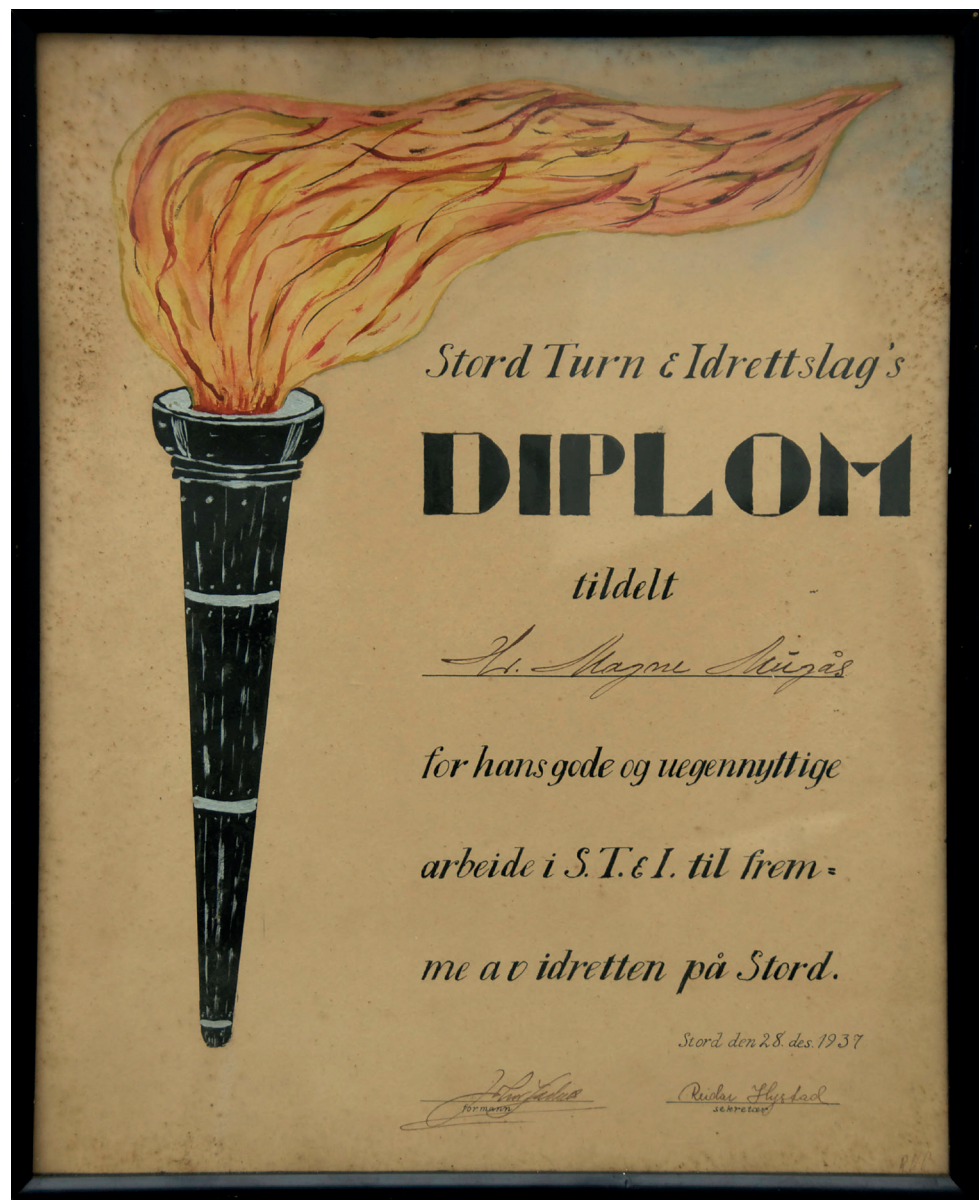 Stord Turn & Idrettslag's
DIPLOM
tildelt
Hr. Magne
for hans gode og uegennyttige
arbeide i S.T. & I. til frem=
me av idretten på Stord.
Stord den 28. des. 1937
Reidar Hystad
formann
sekretær